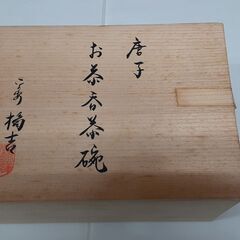 唐子
お茶呑茶碗
橘吉